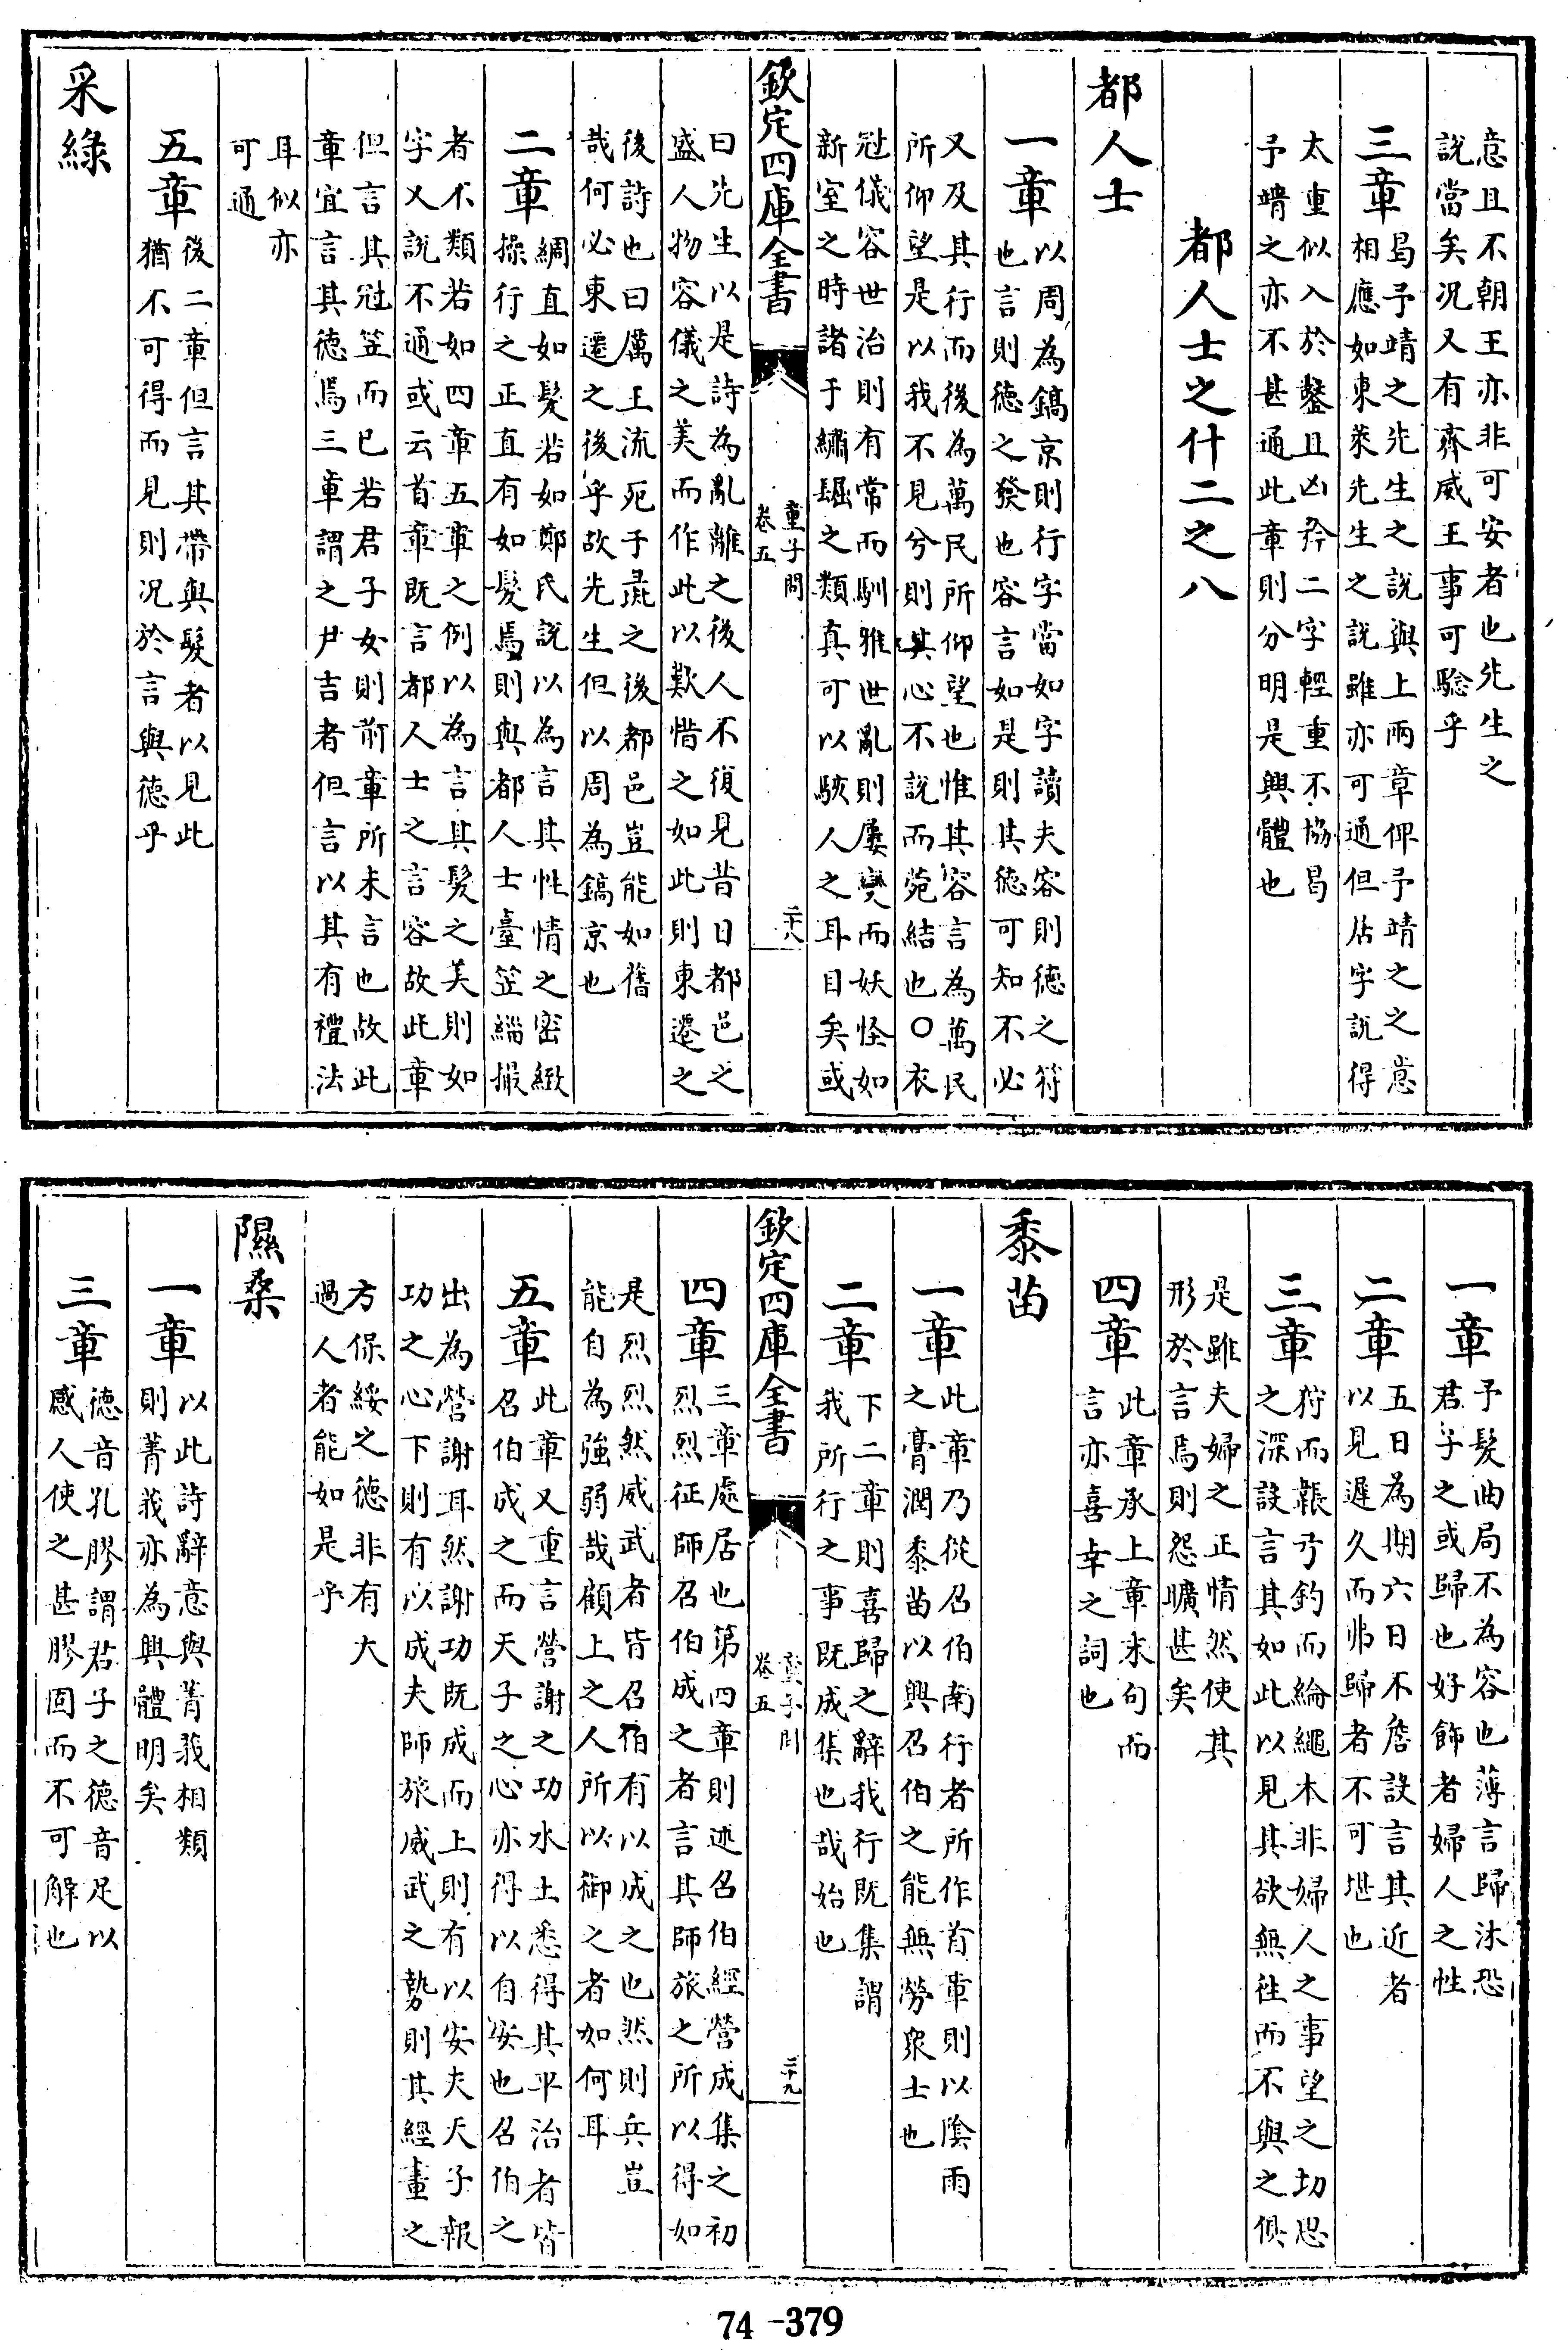 意且不朝王亦非可安者也先生之
說當矣況又有齊威王事可騐乎
三章曷予靖之先生之說與上兩章俾予靖之之意
相應如東萊先生之說雖亦可通但居字說得
太重似入於鑿且凶矜二字輕重不協曷
予靖之亦不甚通此章則分明是興體也
都人士之什二之八
都人士
一章以周為鎬京則行字當如字讀夫容則德之符
也言則德之發也容言如是則其德可知不必
又及其行而後為萬民所仰望也惟其容言為萬民
所仰望是以我不見兮則其心不說而苑結也○衣
冠儀容世治則有常而馴雅世亂則屢變而妖怪如
新室之時諸于繡𧝬之類真可以駭人之耳目矣或
欽定四庫全書
童子問
卷五
二十八
曰先生以是詩為亂離之後人不復見昔日都邑之
盛人物容儀之美而作此以歎惜之如此則東遷之
後詩也曰厲王流死于彘之後都邑豈能如舊
哉何必東遷之後乎故先生但以周為鎬京也
二章綢直如髮若如鄭氏說以為言其性情之密緻
操行之正直有如髮焉則與都人士臺笠緇撮
者不類若如四章五章之例以為言其髮之美則如
字又說不通或云首章既言都人士之言容故此章
但言其冠笠而已若君子女則前章所未言也故此
章宜言其德焉三章謂之尹吉者但言以其有禮法
耳似亦
可通
五章後二章但言其帶與髮者以見此
猶不可得而見則況於言與德乎
采綠
一章予髮曲局不為容也薄言歸沐恐
君子之或歸也好飾者婦人之性
二章五日為期六日不詹設言其近者
以見遲久而弗歸者不可堪也
三章狩而韔弓釣而綸繩本非婦人之事望之切思
之深設言其如此以見其欲無往而不與之俱
是雖夫婦之正情然使其
形於言焉則怨曠甚矣
四章此章承上章末句而
言亦喜幸之詞也
黍苗
一章此章乃從召伯南行者所作首章則以陰雨
之膏潤黍苗以興召伯之能無勞衆士也
二章下二章則喜歸之辭我行既集謂
我所行之事既成集也哉始也
欽定四庫全書
童子問
卷五
二十九
四章三章處居也第四章則述召伯經營成集之初
烈烈征師召伯成之者言其師旅之所以得如
是烈烈然威武者皆召伯有以成之也然則兵豈
能自為強弱哉顧上之人所以御之者如何耳
五章此章又重言營謝之功水土悉得其平治者皆
召伯成之而天子之心亦得以自安也召伯之
出為營謝耳然謝功既成而上則有以安夫天子報
功之心下則有以成夫師旅威武之勢則其經畫之
方保綏之德非有大
過人者能如是乎
隰桑
一章以此詩辭意與菁莪相類
則菁莪亦為興體明矣
三章德音孔膠謂君子之德音足以
感人使之甚膠固而不可解也
74-379